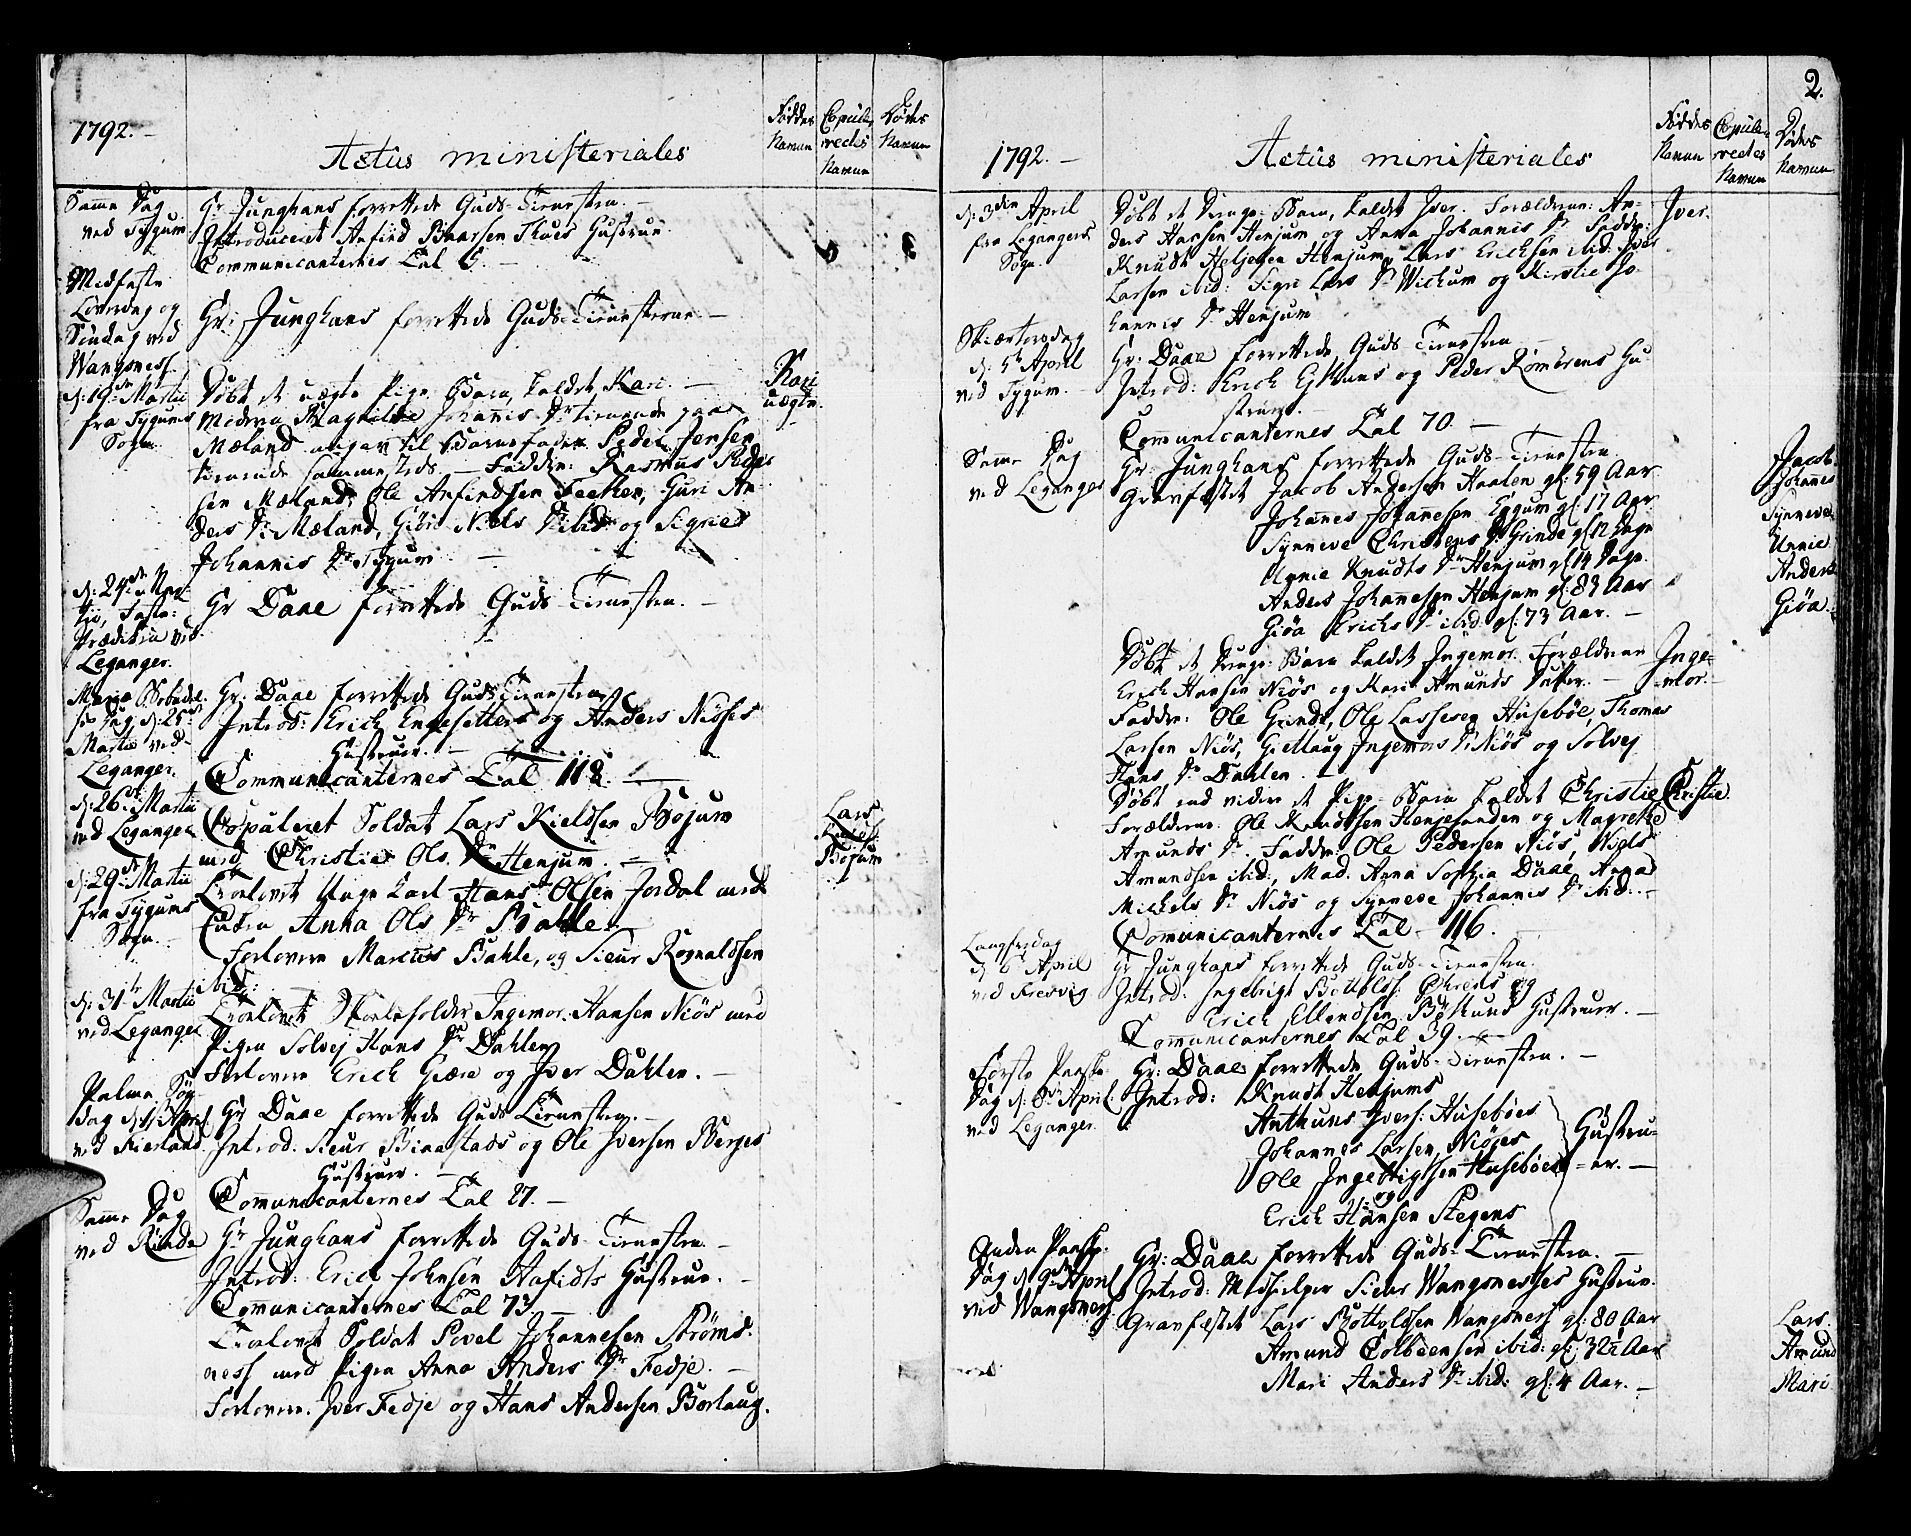 1792.
Actus ministeriales
Føddes Navne
Copuleredes Navne
Dødes Navne
Samme Dag
ved Tygum
Hr Junghans forrettede Guds-Tienesten.
Introduceret Anfind Baarsen Thues Hustrue
Communicanternes Tal 6.
Midfaste
Løverdag og
Søndag ved
Wangsness.
Hr: Junghans forrettede Guds-Tienesterne
d: 19de Martii
fra Tygums
Sogn
Døbt et uægte Pige-Barn, kaldet Kari.
Moderen Magnilde Johannis Dr tienende paa
Mæland angav til Barnefader Peder Jensen
tienende sammesteds. Faddere: Rasmus Peder-
sen Mæland, Ole Anfindsen Feeten, Guri An-
ders Dr Mæland, Giøri Niels Dr ibid: og Signed
Johannis Dr Tygum
Kari
uægte
d: 24de Mar-
tii, Faste-
Prædiken ved
Leganger.
Hr Daae forrettede Guds-Tienesten.
Mariæ Bebudel-
ses Dag d: 25de
Martii ved
Leganger.
Hr: Daae forrettede Guds-Tienesten
Introd: Erich Engesetters og Anders Niøses
Hustruer.
Communicanternes Tal 118.
d: 26de Martii
ved Leganger
Copuleret Soldat Lars Kieldsen Bøjum
med Christie Ols Dr Henjum.
Lars
Kields:
Bøjum
d: 29de Martii
fra Tygums
Sogn.
Trolovet Unge Karl Hans Olsen Jordal med
Enken Anna Ols Dr Bahle.
Forlovere Marcus Bahle, og Sieur Rognaldsen
ibid:
d: 31te Martii
ved Leganger
Trolovet Ingemor Hansen Niøs med
Pigen Solvej Hans Dr Dahlen
Forlovere Erich Giære og Iver Dahlen.
Palme Søn-
dag d: 1ste April
ved Fierland
Hr Daae forrettede Guds Tienesten.
Introd: Sieur Binastads og Ole Iversen Berges
Hustruer.
Comunicanternes Tal 87.
Samme Dag
ved Rinde
Hr Junghans forrettede Guds-Tienesten
Introd: Erich Johnsen Hustrue.
Comunicanternes Tal 73.
Trolovet Soldat Povel Johannesen Strøms-
ness med Pigen Anna Anders Dr Fedje.
Forlovere: Iver Fedje og Hans Andersen Borlaug.
2.
1792.
Actus ministeriales
Føddes Navne
Copuleredes Navne
Dødes Navne
d: 3die April
fra Legangers
Sogn.
Døbt et Drenge-Barn, kaldet Iver. Forældrene: An-
ders Hansen Henjum og Anna Johannis Dr Faddere:
Knudt Henjum, Lars Erichsen ibid: Iver
Larsen ibid: Sigri Lars Dr Wichum og Kirstie Jo-
hannis Dr Henjum
Iver.
Skiærtorsdag
d: 5te April
ved Tygum.
Hr: Daae forrettede Guds Tienesten
Introd: Erich Ejthuns og Peder Rømerens Hu-
struer.
Communicanternes Tal 70.
Samme Dag
ved Leganger
Hr: Junghans forrettede Guds-Tienesten.
Gravfæstet Jacob Andersen Haalen gl: 59 Aar
Johannes Johannesen Eggum gl: 17 Aar
Synneve Christens Dr Grinde gl: 12 Dage
Unnie Knudts Dr Henjum gl: 14 Dage.
Anders Johannesen Henjum gl: 83 Aar
Giøa Erichs Dr ibid: gl: 73 Aar.
Jacob
Johannes
Synneve
Unnie
Anders
Giøa.
Døbt et Drenge-Barn kaldet Ingemor. Forældrene
Erich Hansen Niøs og Mari Amunds Datter.
Faddere: Ole Grinde, Ole Lassesen Husebøe, Thomas
Larsen Niøs, Giettaug Ingemors Dr Niøs og Solvej
Hans Dr Dahlen.
Inge-
mor.
Døbt end videre et Pige-Barn kaldet Christie
Forældrene: Ole Knudtsen Henjesanden og Magrethe
Amunds Dr. Faddere: Ole Pedersen Niøs, Niels
Amundsen ibid:, Mad. Anna Sophia Daae, Anna
Michels Dr Niøs og Synneve Johannis Dr ibid:
Christie.
Comunicanternes Tal 116.
Langfredag
d: 6te April
ved Fresvig
Hr Junghans forrettede Guds-Tienesten.
Introd: Ingebrigt Bottolfs: og
Erich Ellendsen Bøthuns Hustruer.
Comunicanternes Tal 39.
Første Paaske-
Dag d: 8de April
ved Leganger.
Hr: Daae forrettede Guds-Tienesten.
Introd: Knudt Henjums
Anthuns Ivers: Husebøes
Johannes Larsen Niøses
Ole Ingebrigtsen Husebøes
og
Erich Hansen Stegens
Hustru-
er.
Anden Paaske-
Dag d: 9de April
ved Wangsness.
Hr: Daae forrettede Guds-Tienesten.
Introd: Medhielper Sieur Wangsnesses Hustrue.
Gravfæstet Lars Bottolfsen Wangsness gl: 80 Aar
Amund Colbeensen ibid: gl: 32½ Aar
Mari Anders Dr ibid: gl: 4 Aar.
Lars.
Amund
Mari